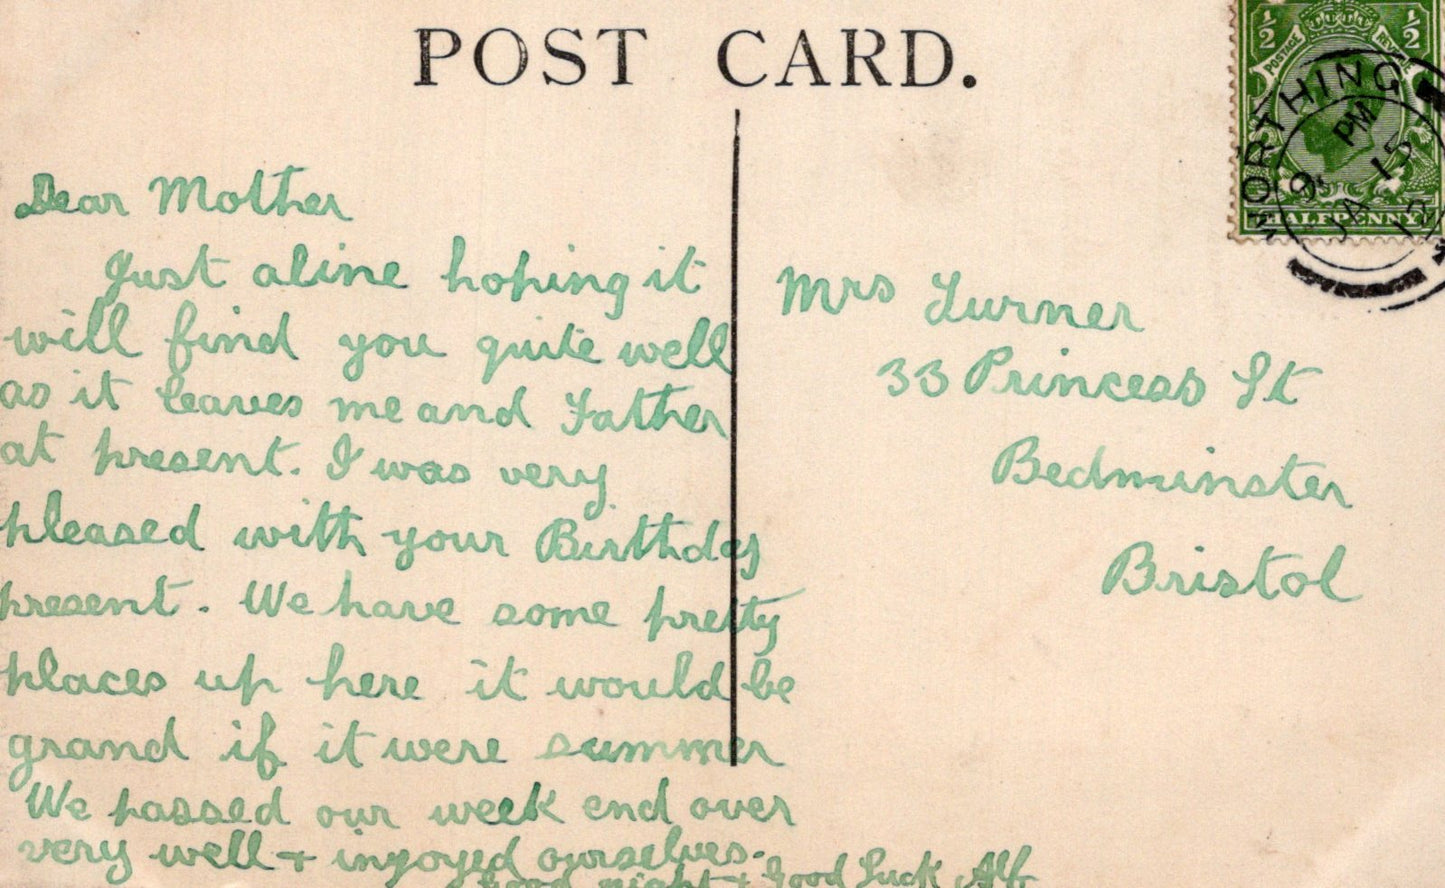 POST CARD.
½ ½
POSTAGE REVENUE
HALFPENNY
WORTHING
PM
15
JA
12
Dear Mother
Just aline hoping it
will find you quite well
as it leaves me and Father
at present. I was very
pleased with your Birthday
present. We have some pretty
places up here it would be
grand if it were summer
We passed our week end over
very well + injoyed ourselves.
Good night + Good Luck Alf
Mrs Turner
33 Princess St
Bedminster
Bristol